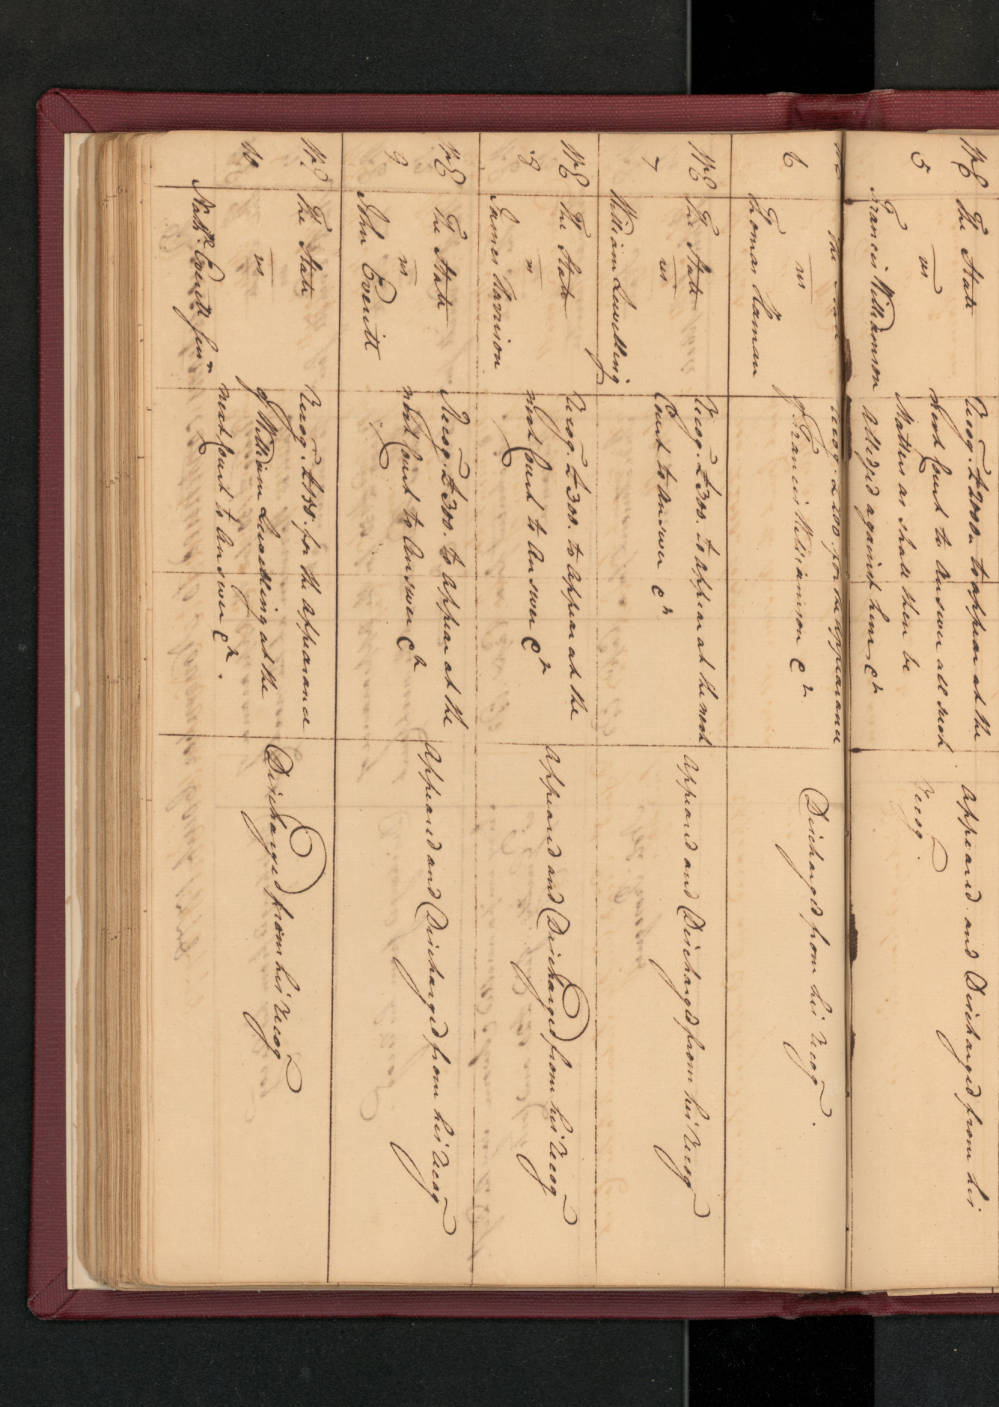 W&C The State Recog. £2000. to appear at the appeared and Discharged from his
5 vs next Court to answer all such recog.
Francis Williamson Matters as shall then be
alledged against him &c
The State recog. £200 for the appearance
6 vs of Francis Williamson &c Discharged from his recog.
Thomas Haman
W&C The State Recog. £300. to appear at the next appeared and Discharged from his recog
7 vs Court to answer &c
William Luwelling
W&C The State Recog. £300. to appear at the appeared and Discharged from his recog
8 vs next Court to answer &c
James Harrison
W&C The State Recog. £300. to appear at the appeared and Discharged from his recog
9 vs next Court to answer &c
John Everitt
W&C The State Recog. £150. for the appearance Discharged from his recog
10 vs of William Luwelling at the
Nathl. Everitt junr next Court to answer &c.